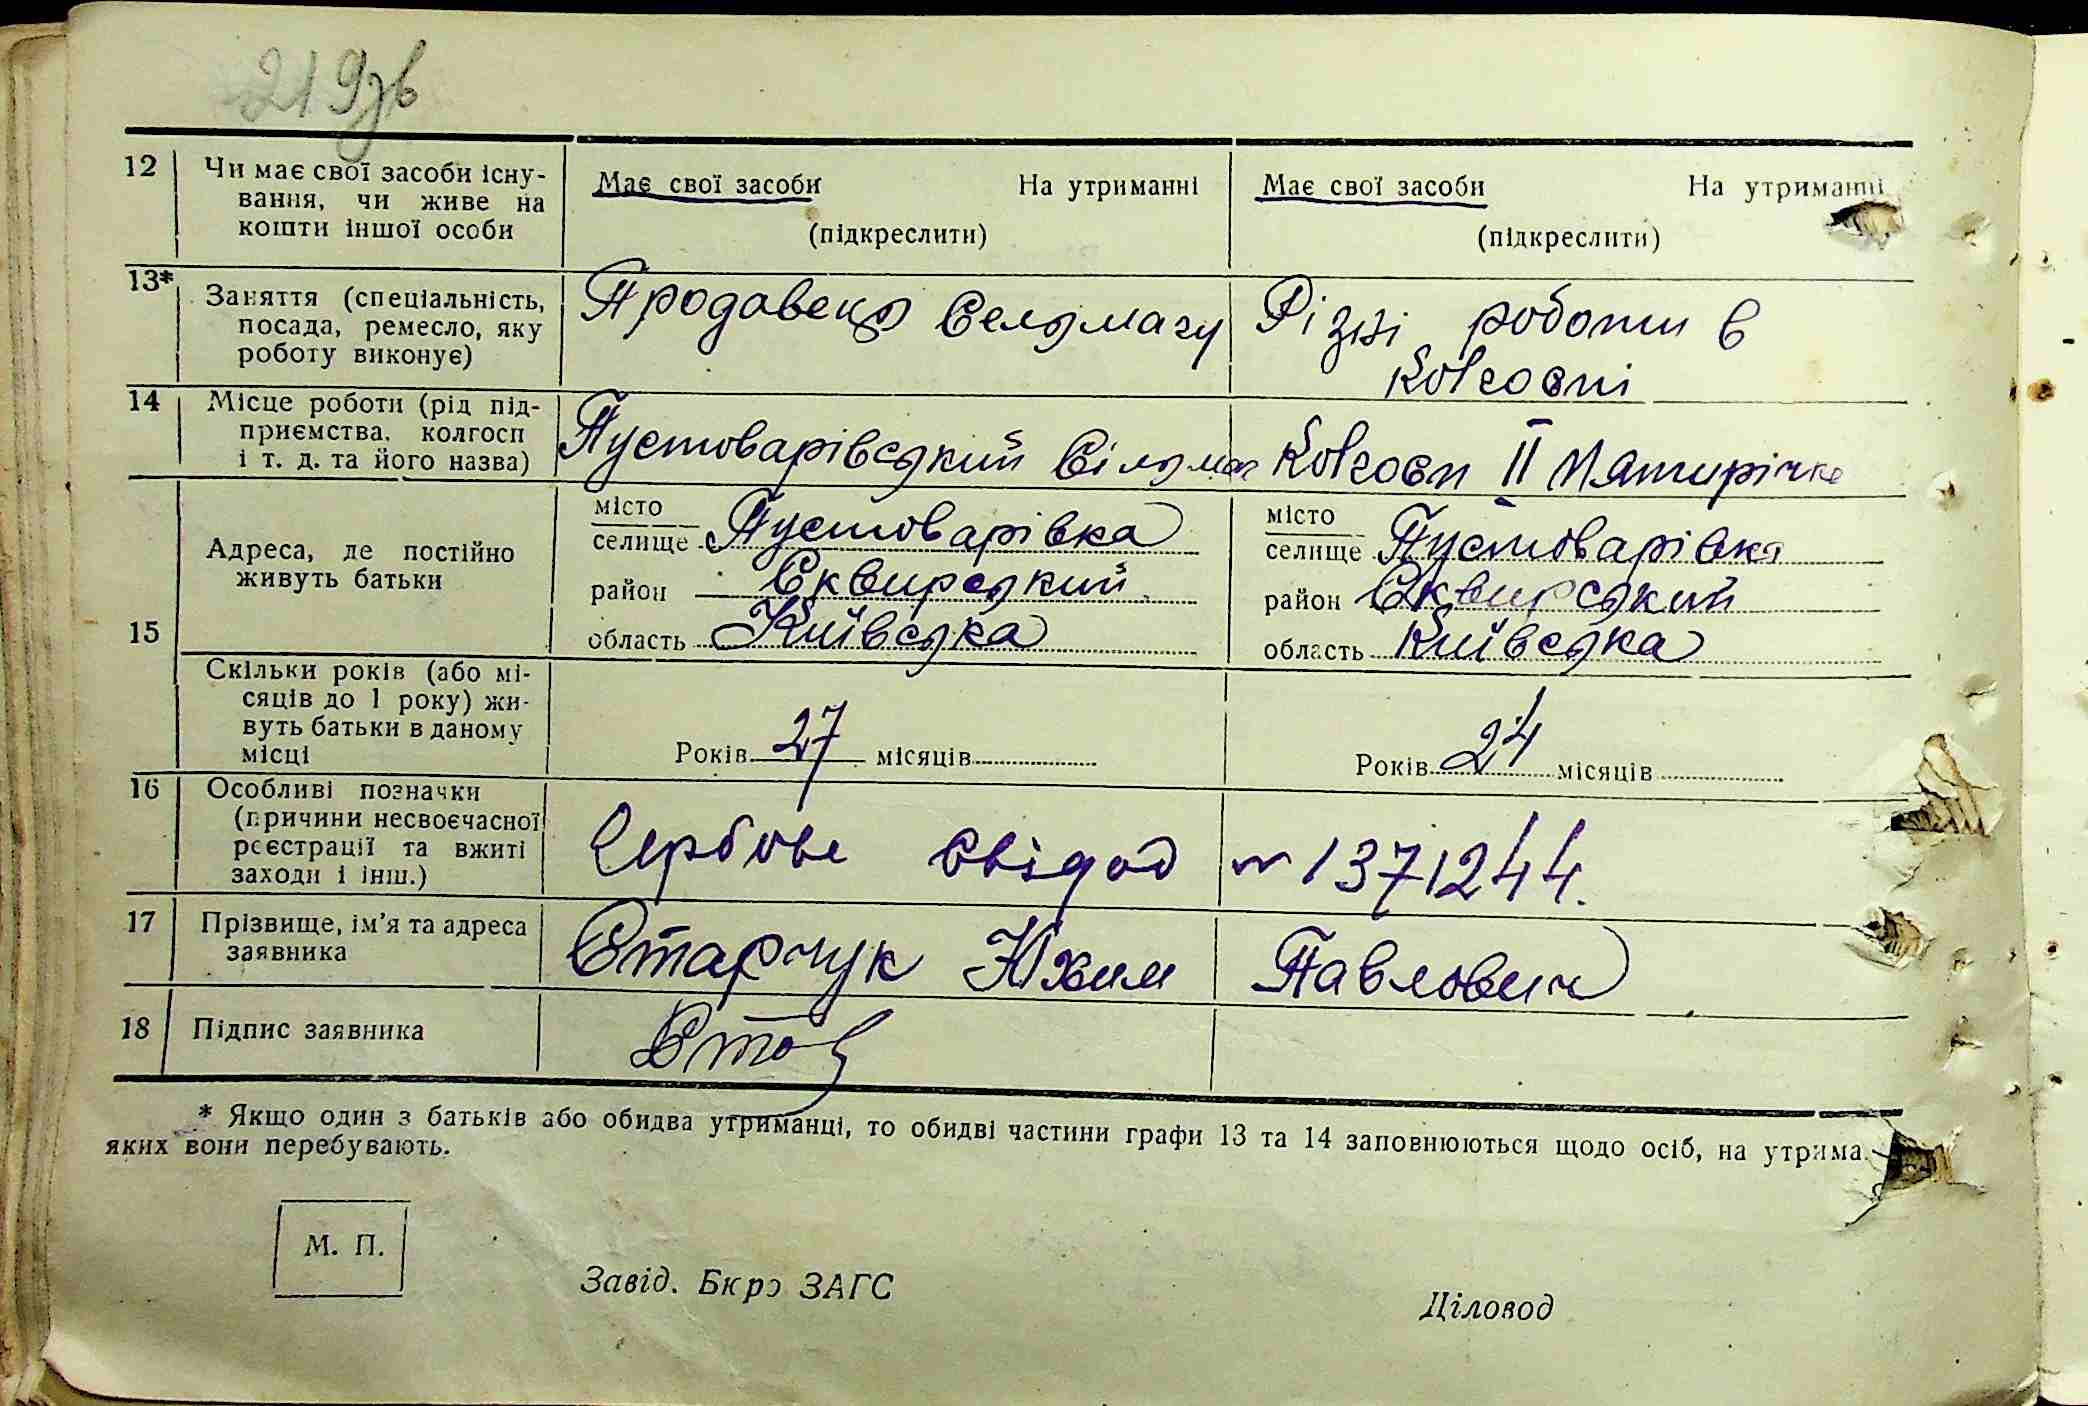 219зв
12 Чи має свої засоби існу- Має свої засоби На утриманні Має свої засоби На утриманні
вання, чи живе на
кошти іншої особи (підкреслити) (підкреслити)
13* Заняття (спеціальність, Продавець Сельмагу Різні роботи в
посада, ремесло, яку
роботу виконує) колгоспі
14 Місце роботи (рід під-
приємства, колгосп Пустоварівський Сільмаг Колгосп ІІ Пятирічка
і т. д. та його назва)
місто місто
Адреса, де постійно селище Пустоварівка селище Пустоварівка
живуть батьки район Сквирський район Сквирський
15 область Київська область Київська
Скільки років (або мі-
сяців до 1 року) жи-
вуть батьки в даному
місці Років 27 місяців Років 24 місяців
16 Особливі позначки
(причини несвоєчасної
реєстрації та вжиті Гербове свідод № 1371244.
заходи і інш.)
17 Прізвище, ім'я та адреса Старчук Юхим Павлович
заявника
18 Підпис заявника
* Якщо один з батьків або обидва утриманці, то обидві частини графи 13 та 14 заповнюються щодо осіб, на утрима
яких вони перебувають.
М. П.
Завід. Бюро ЗАГС
Діловод